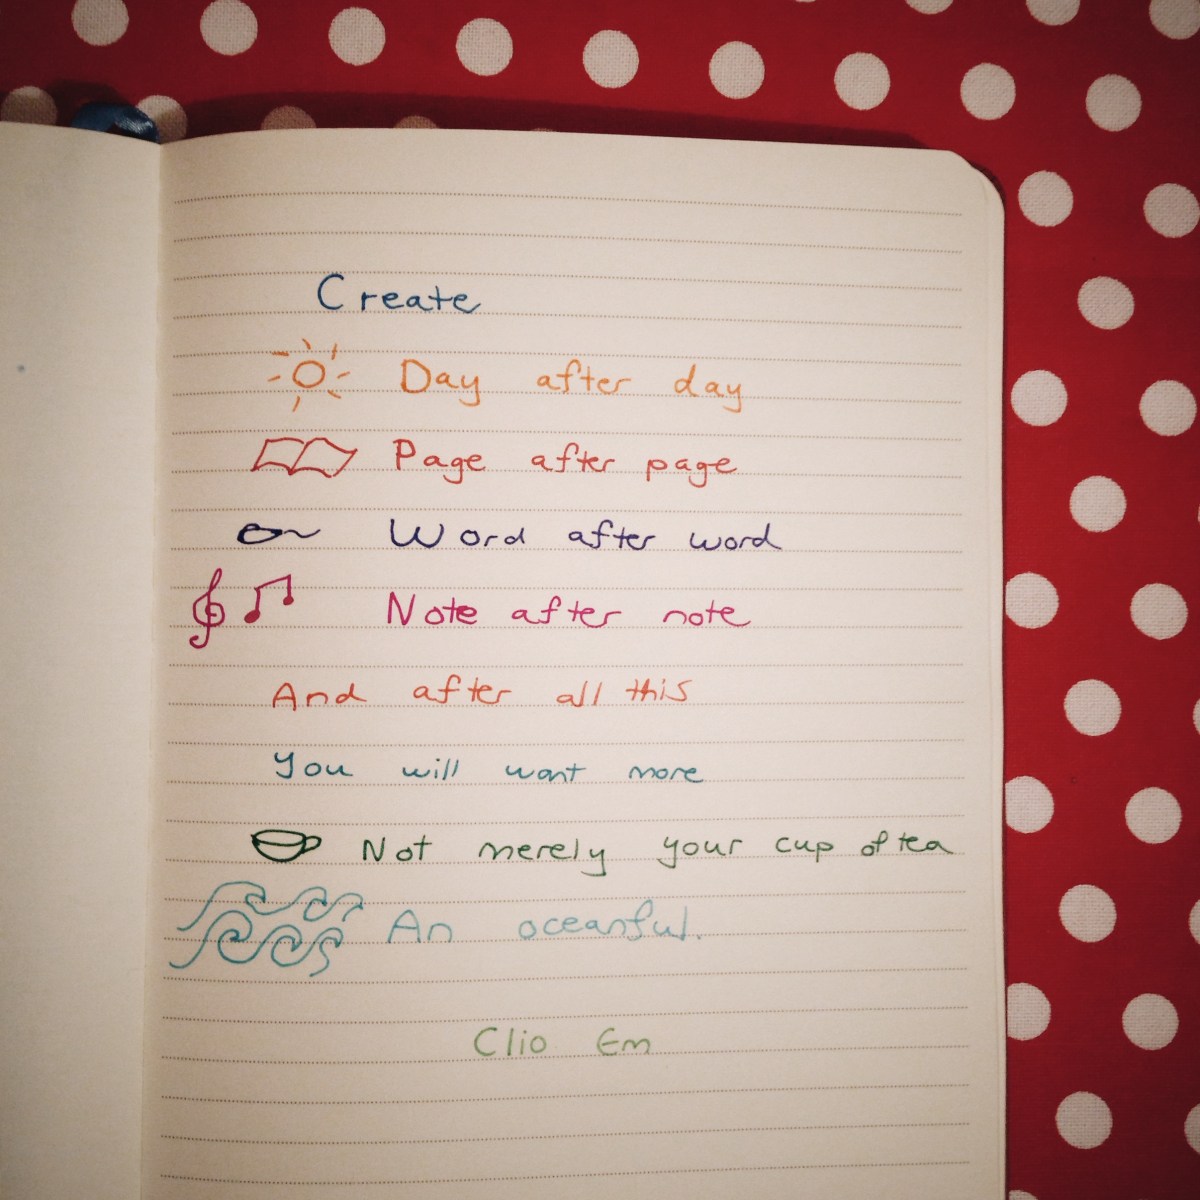 Create
Day after day
Page after page
Word after word
Note after note
And after all this
You will want more
Not merely your cup of tea
An oceanful.
Clio Em